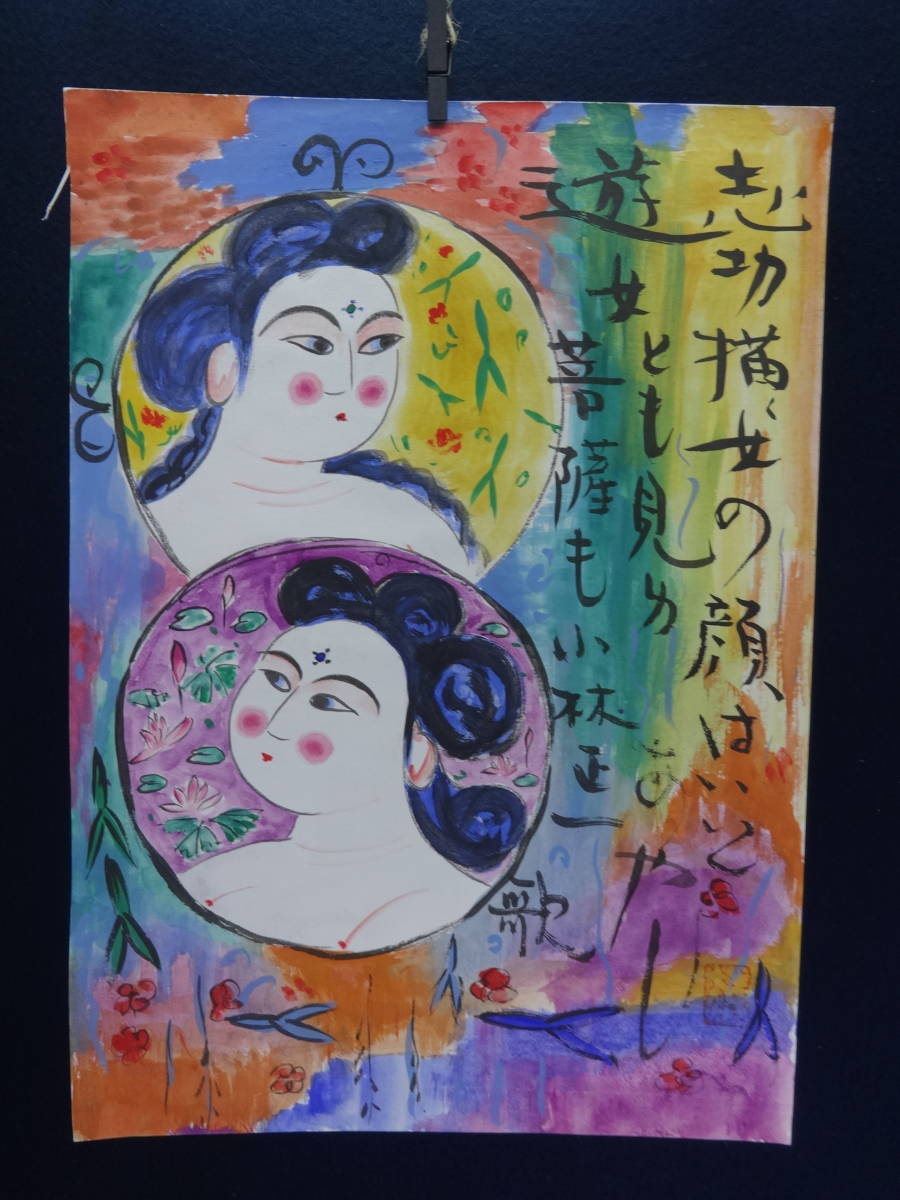 志功描く女の顔、はいと
遊女とも見ゆ
あやし
菩薩も
小林正一
歌